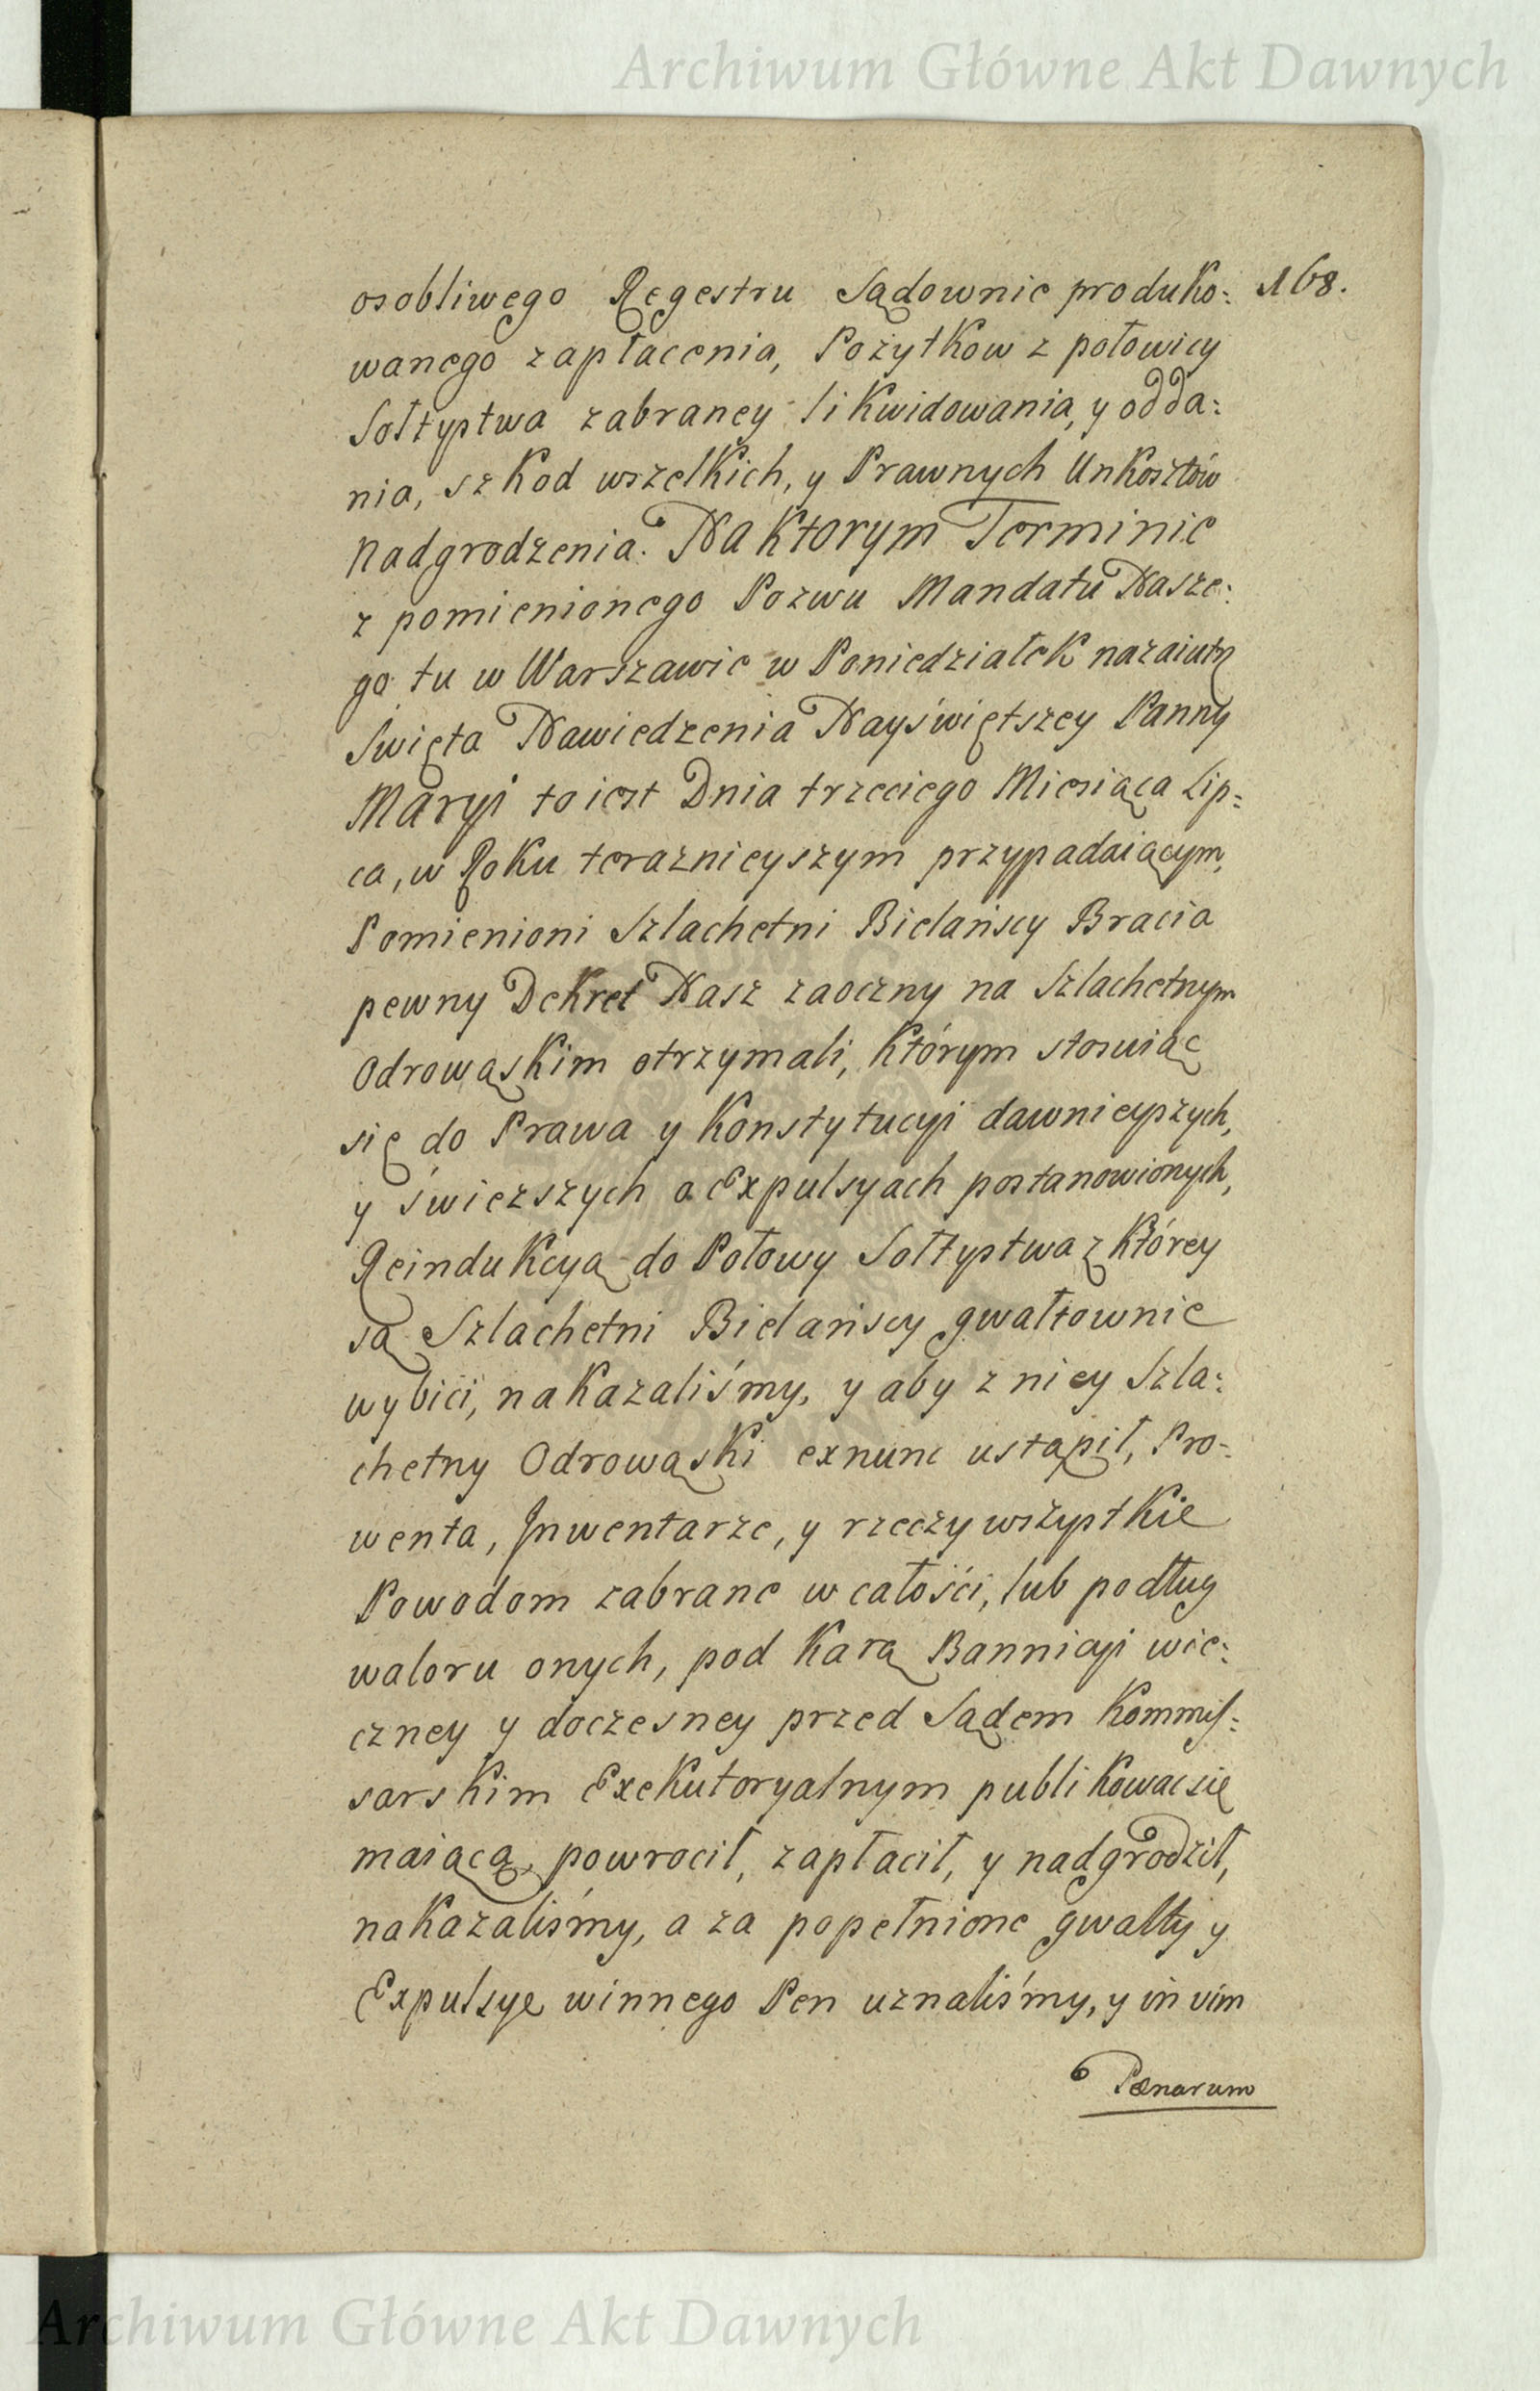 Archiwum Główne Akt Dawnych
osobliwego Regestru Sądownie produko: 168.
wanego zapłacenia, Pożytkow z połowicy
Sołtystwa zabraney likwidowania, y odda:
nia, szkod wszelkich, y Prawnych Unkosztów
nadgrodzenia. Na ktorym Terminie
z pomienionego Pozwu Mandatu Nasze:
go tu w Warszawie w Poniedziałek nazaiutrz
Swięta Nawiedzenia Nayświętszey Panny
Maryi to iest Dnia trzeciego Miesiąca Lip:
ca, w Roku teraznieyszym przypadaiącym,
Pomienioni Szlachetni Bielańscy Bracia
pewny Dekret Nasz zaoczny na Szlachetnym
Odrowąskim otrzymali, którym stosuiąc
się do Prawa y Konstytucyi dawnieyszych,
y świerszych o Expulsyach postanowionych,
Reindukcyą do Połowy Sołtystwa z którey
są Szlachetni Bielańscy gwałtownie
wybici, nakazaliśmy, y aby z niey Szla:
chetny Odrowąski exnunc ustąpił, Pro:
wenta, Inwentarze, y rzeczy wszystkie
Powodom zabrane w całości, lub podług
waloru onych, pod karą Bannicyi wie:
czney y doczesney przed Sądem Kommis:
sarskim Exekutoryalnym publikowac się
maiącą, powrocił, zapłacił, y nadgrodził,
nakazaliśmy, a za popełnione gwałty y
Expulsye winnego Pen uznaliśmy, y in vim
Pænarum
Archiwum Główne Akt Dawnych